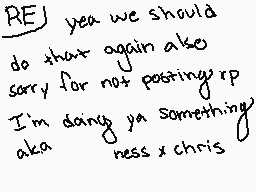 RE yea we should
do that again also
sorry for not posting rp
I'm doing ya something
aka ness x chris